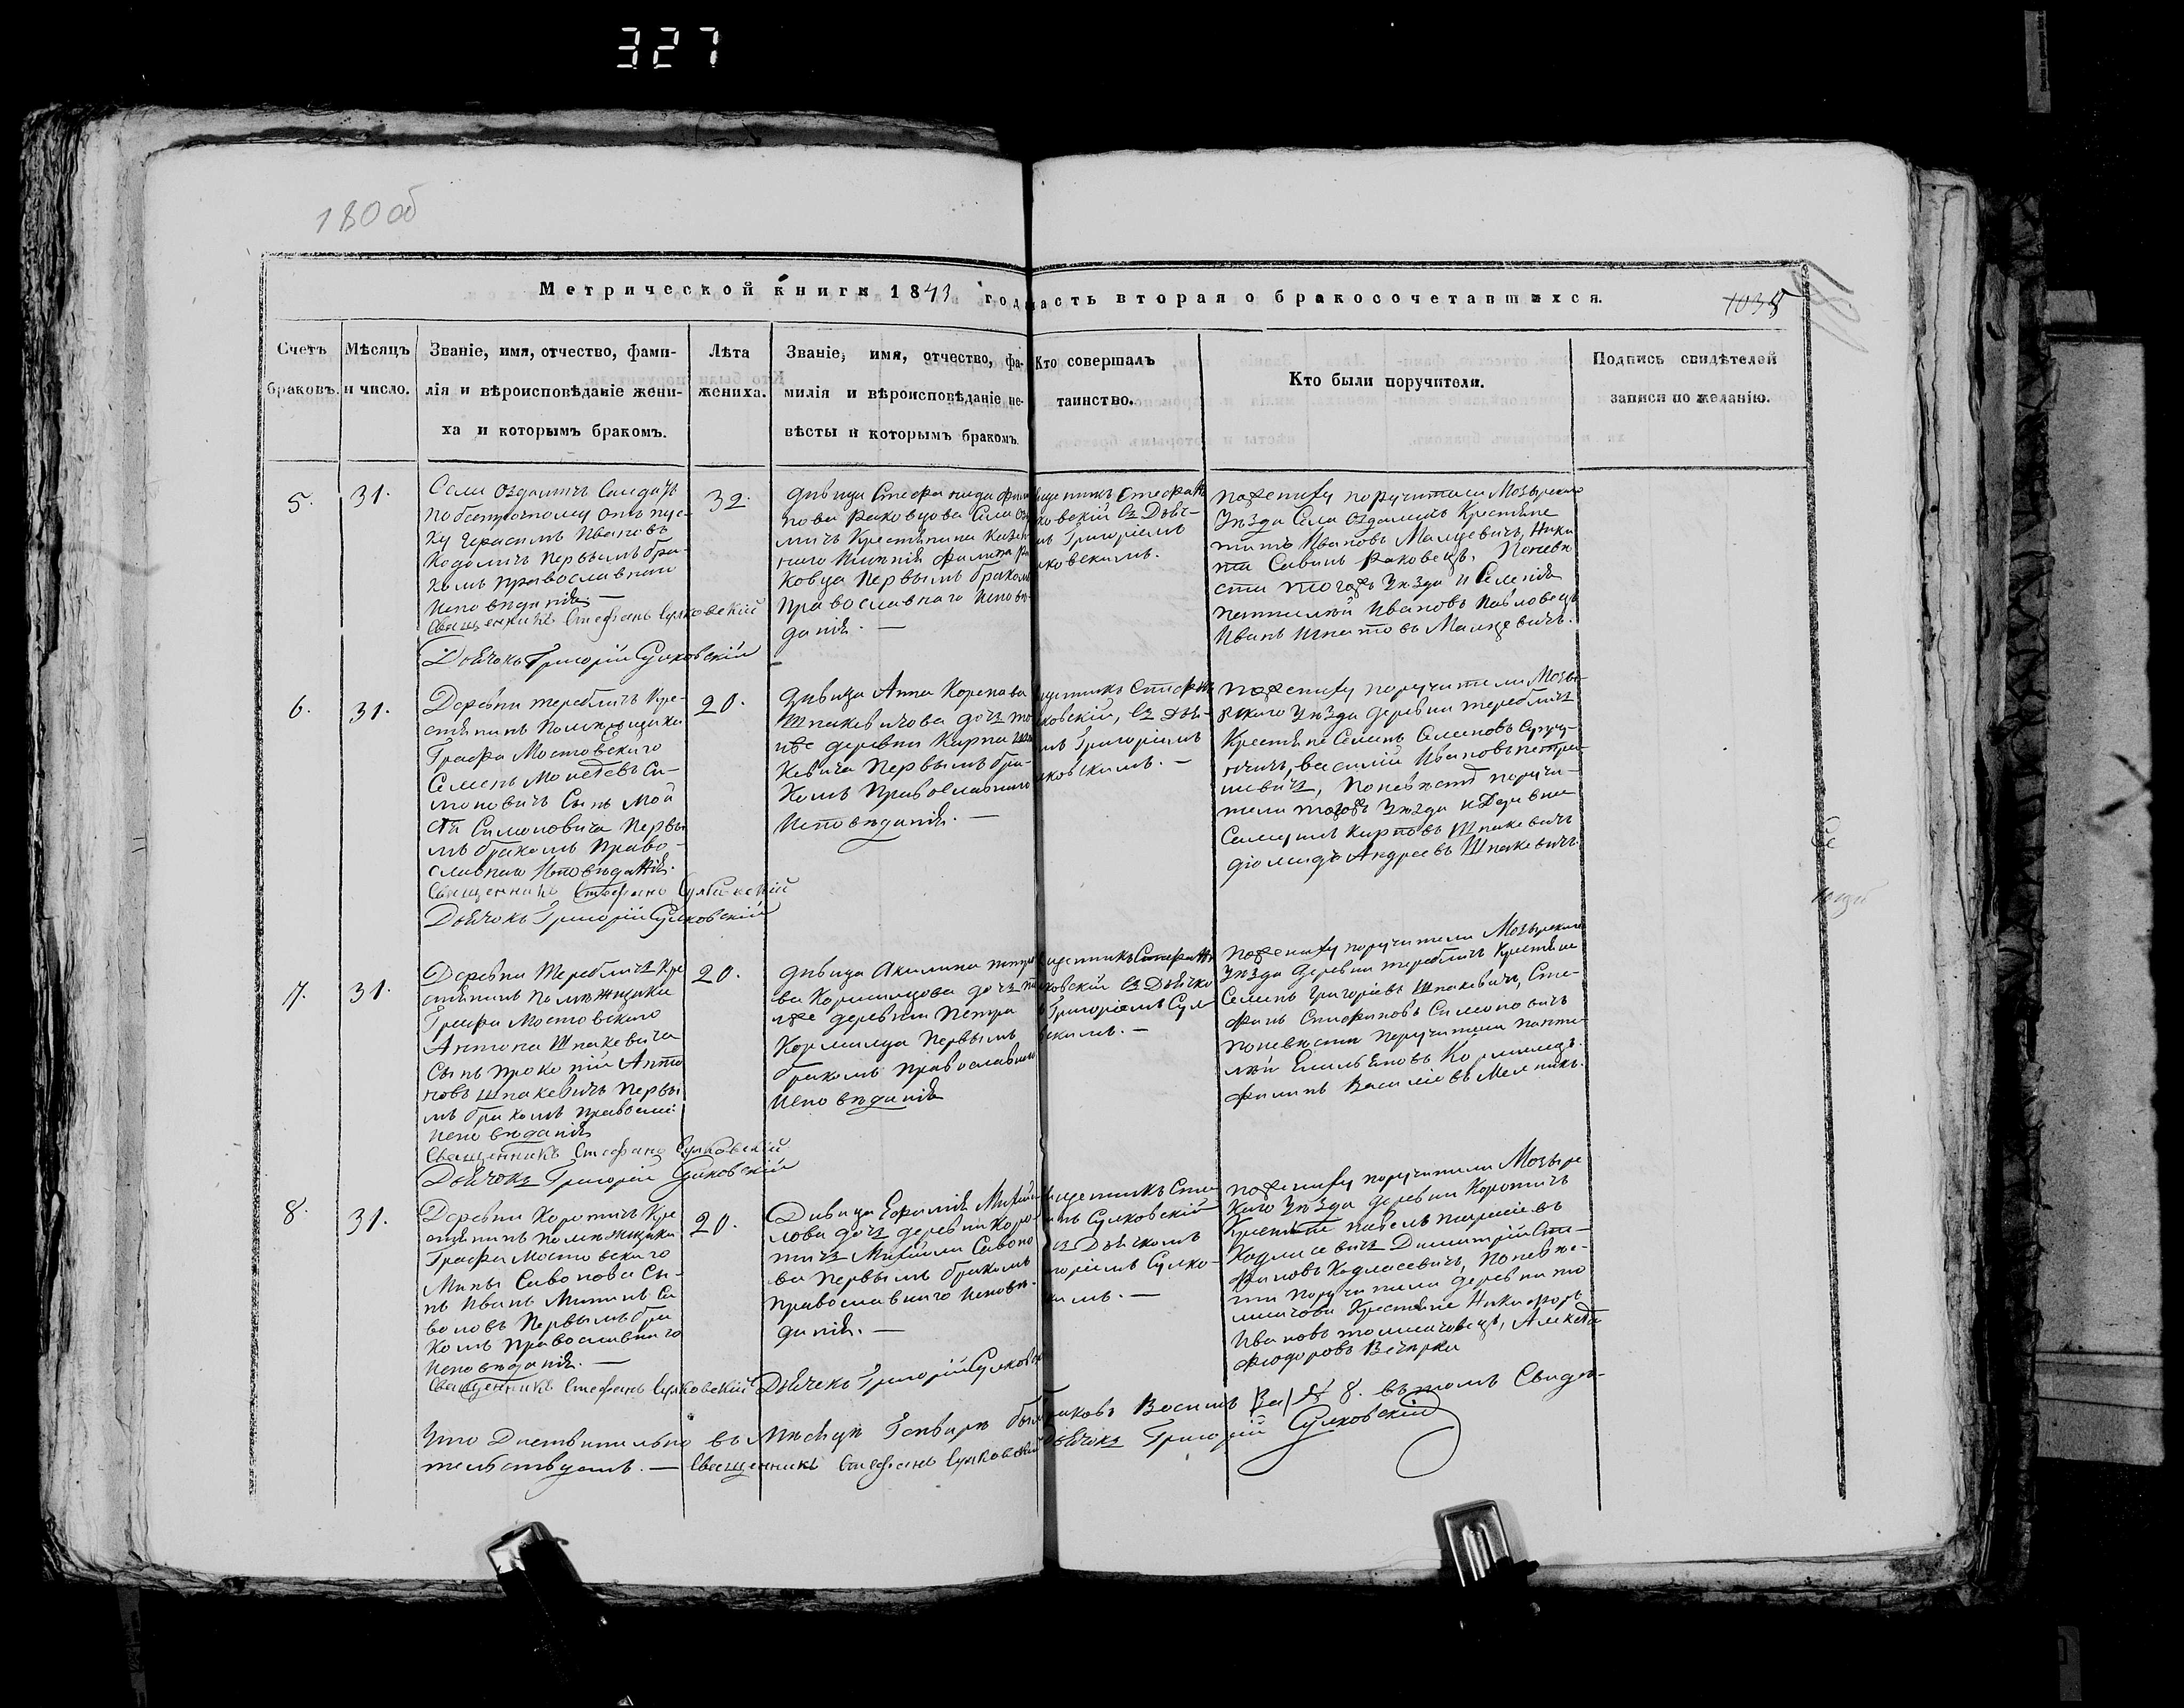 327
180 об
Метрической книги 1843 год часть вторая о бракосочетавшихся.
1035
181
Счетъ браковъ.
Мѣсяцъ и число.
Званіе, имя, отчество, фами-
лія и вѣроисповѣданіе жени-
ха и которымъ бракомъ.
Лѣта
жениха.
Званіе, имя, отчество, фа-
милія и вѣроисповѣданіе не-
вѣсты и которымъ бракомъ.
Кто совершалъ
таинство.
Кто были поручители.
Подпись свидѣтелей
записи по желанію.
5.
31.
Села Оздамичъ Салдатъ
по безсрочному отпус-
ку Герасимъ Ивановъ
первымъ бра-
комъ православнаго
исповѣданія. —
Священникъ Стефанъ Сулковскій
Дьячокъ Григорій Сулковскій
32.
Дѣвица Стефанида Фили
пова Раковцова Села Озда
мичъ Крестьянина Казен
наго Имѣнія Филипа Ра
ковца первымъ бракомъ
православнаго исповѣ-
данія. —
щенникъ Стефанъ
ковскій съ Дьяч-
мъ Григоріемъ
лковскимъ.
по жениху поручители Мозырскаго
уѣзда Села Оздамичъ Крестьяне
Ивановъ Малцевичъ, Ники
та Савинъ Раковецъ. По невѣ
сти тогожъ уѣзда и Селенія
пантилѣй Ивановъ Павловецъ
Иванъ Игнатовъ Малцевичъ.
6.
31.
Деревни Теребличъ Кре-
стьянинъ помѣщика
Графа Мостовскаго
Семенъ Моисѣевъ Си-
моновичъ Сынъ Мои
сѣя Симоновича первы
мъ бракомъ право-
славнаго исповѣданія.
Священникъ Стефанъ Сулковскій
Дьячокъ Григорій Сулковскій
20.
Дѣвица Анна Корнева
Шпакевичова дочь то
йже деревни Карпа Шпа
кевича первымъ бра-
комъ православнаго
исповѣданія. —
щенникъ Стефанъ
ковскій, съ Дья-
мъ Григоріемъ
лковскимъ. —
по жениху поручители Мозы-
рскаго уѣзда деревни Теребличъ
Крестьяне Семенъ Семеновъ
Василій Ивановъ
по невѣсти поручи-
тели тогожъ уѣзда и Деревни
Карповъ Шпакевичъ
Андреевъ Шпакевичъ
7.
31.
Деревни Теребличъ Кре
стьянинъ помѣжщика
Графа Мостовскаго
Антона Шпакевича
Сынъ Прокопій Анто
новъ Шпакевичъ первы
мъ бракомъ православ:
исповѣданія
Священникъ Стефанъ Сулковскій
Дьячокъ Григорій Сулковскій
20.
Дѣвица Акилина Петро
ва Кормильцова дочь то
йже деревни Петра
Кормильца первымъ
бракомъ православнаго
исповѣданія
щенникъ Стефанъ
лковскій съ Дьячко
Григоріемъ Сул
вскимъ. —
по жениху поручители Мозырскаго
уѣзда деревни Теребличъ Крестьяне
Семенъ Григоріевъ Шпакевичъ, Сте-
фанъ Стефановъ Симоновичъ
по невѣсти поручители панти-
лѣй Емельяновъ Кормилецъ.
Филипъ Василіевъ Мелникъ.
8.
31.
Деревни Коротичъ Кре
стьянинъ помѣжщика
Графа Мостовскаго
Мины Савонова Сы-
нъ Иванъ Мининъ Са
воновъ первымъ бра
комъ православнаго
исповѣданія. —
Священникъ Стефанъ Сулковскій Дьячекъ Григорій Сулковскій
20.
Дѣвица Ефимія Михай
лова дочь деревни Коро-
тичъ Михайла Савоно
ва первымъ бракомъ
православнаго исповѣ-
данія. —
щенникъ Сте
анъ Сулковскій
съ Дьячкомъ
горіемъ Сулко-
кимъ. —
по жениху поручители Мозырс
каго уѣзда деревни Коротичъ
Крестьяне Павелъ
Димитрій Сте-
фановъ Кодласевичъ, по невѣс-
ти поручители деревни То
лмачова Крестьяне Никифоръ
Ивановъ Толмачовецъ, Алексѣй
Феодоровъ Вечорко
Что Дѣствительно въ Мѣсяцѣ Генварѣ было браковъ Восимъ [За] № 8. въ томъ Свидѣ-
тельствуемъ. — Священникъ Стефанъ Сулковскій Дьячокъ Григорій Сулковскій